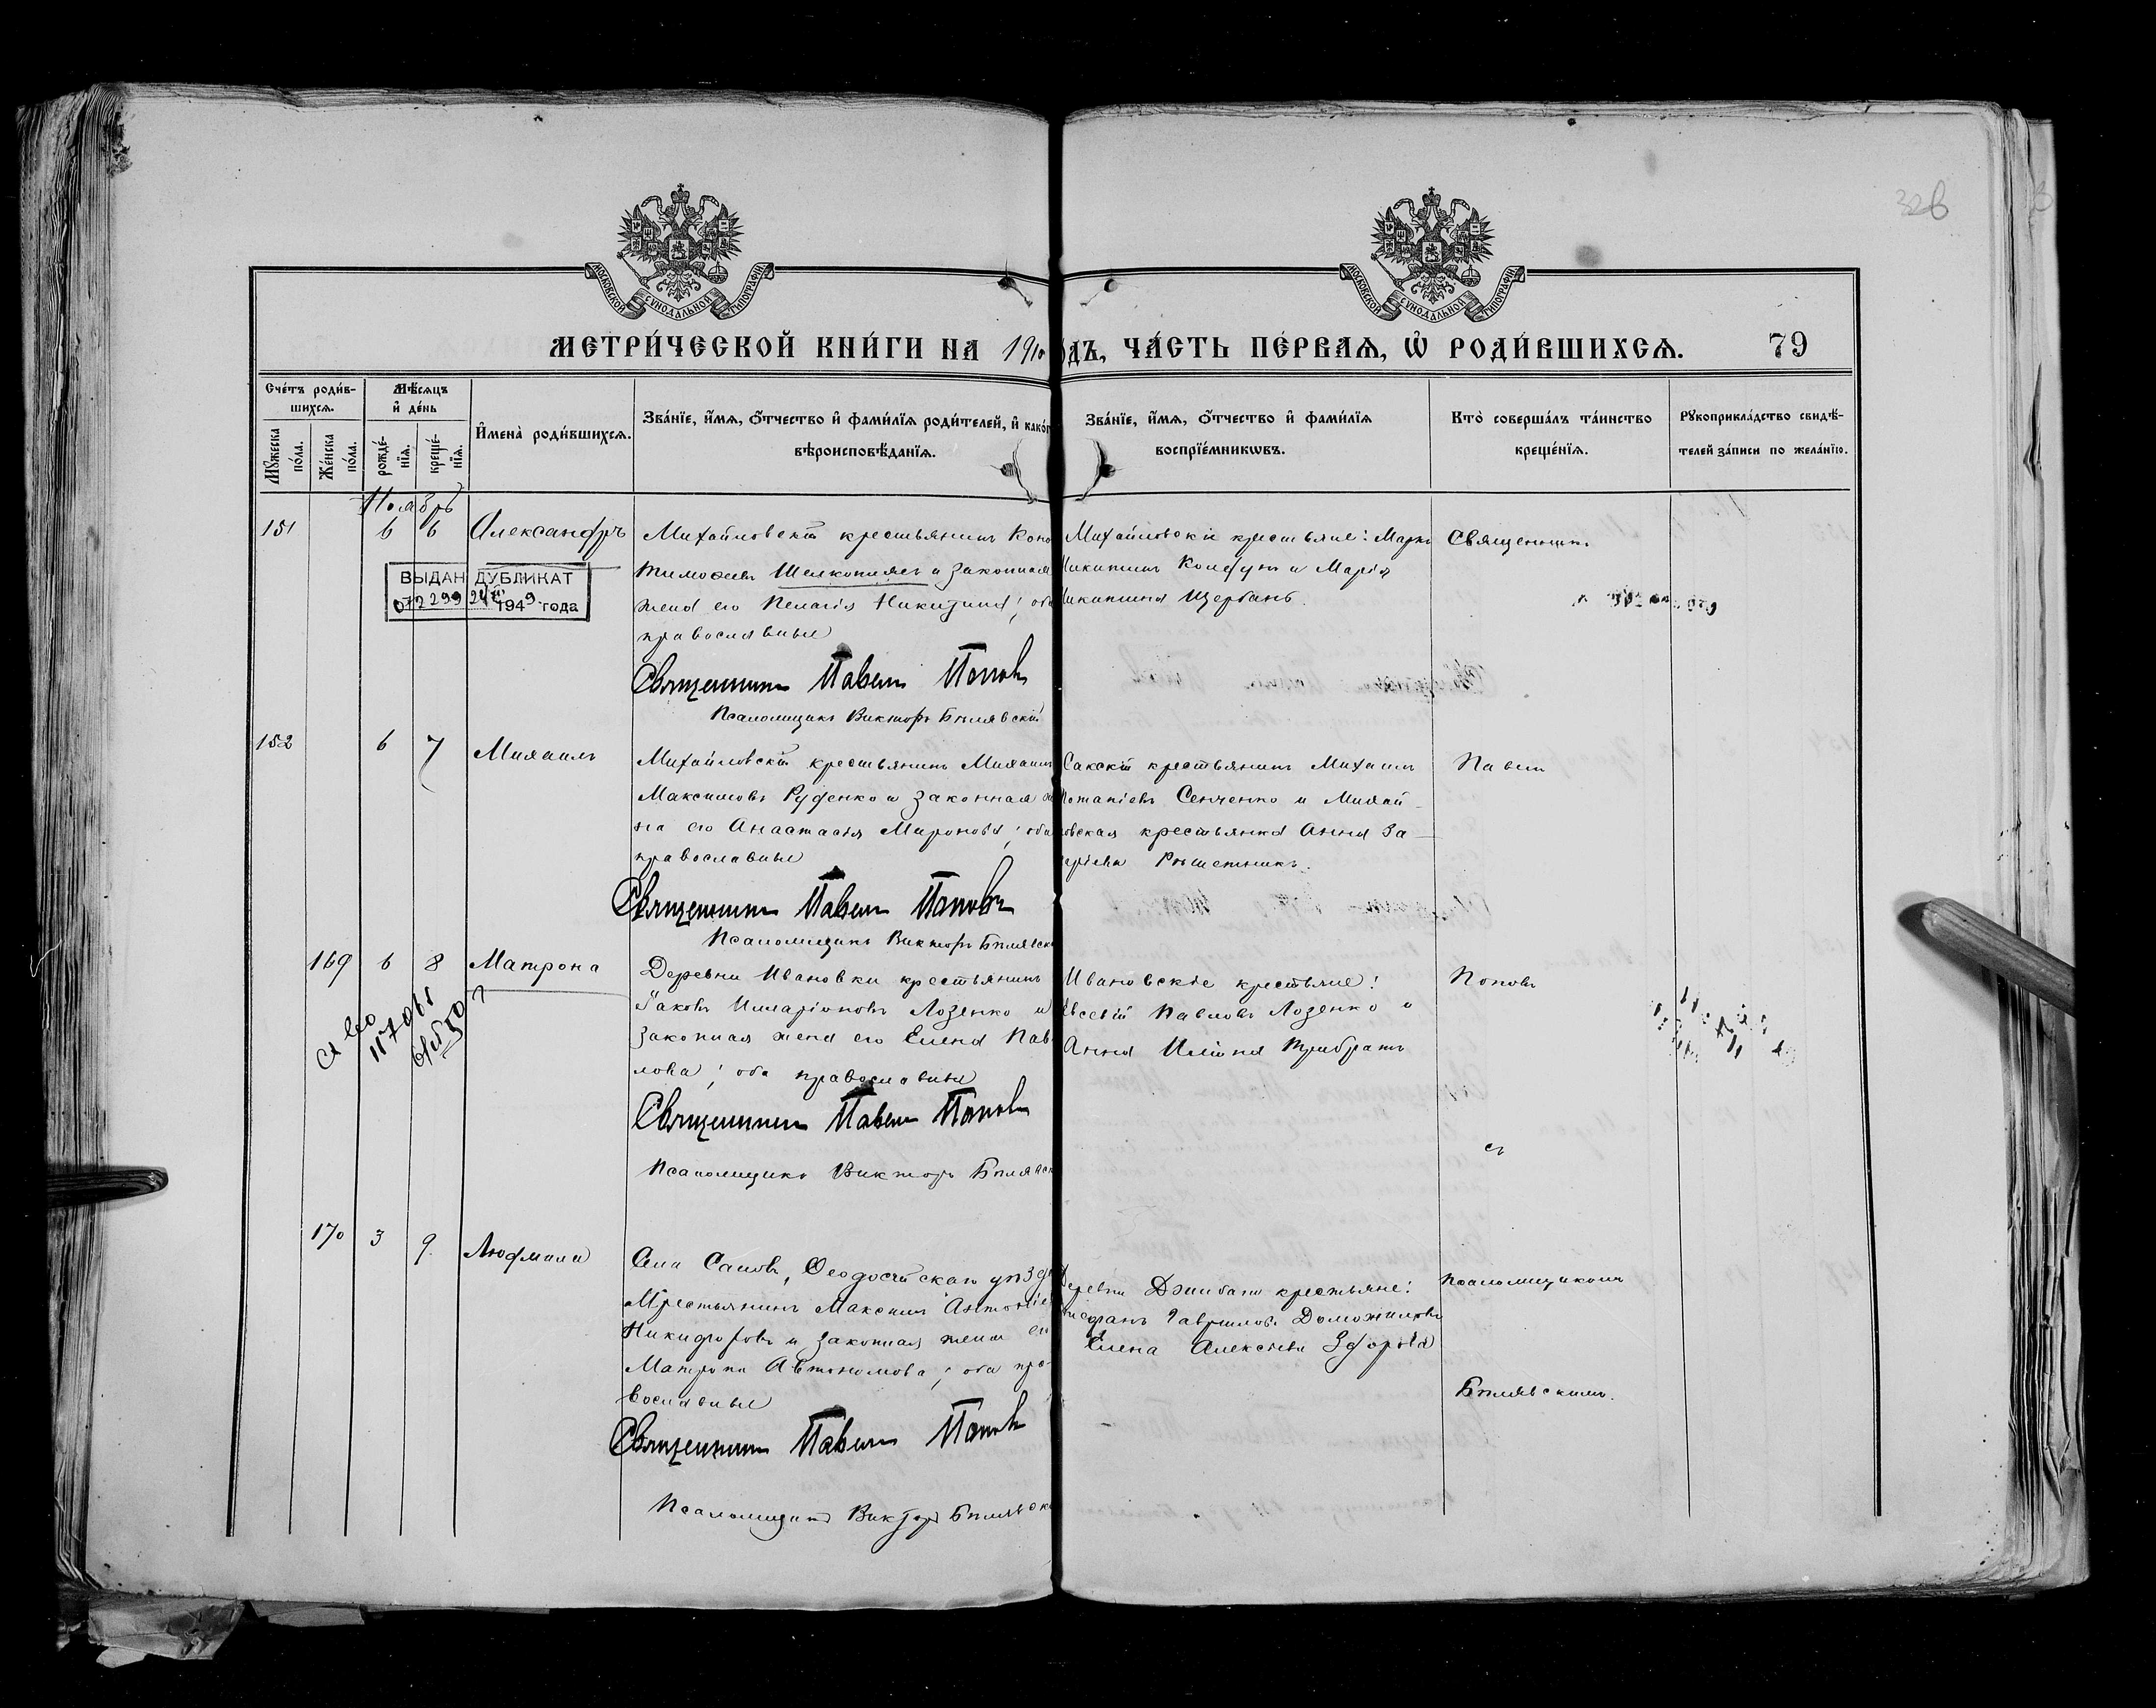 326
МОСКОВСКОЙ СУНОДАЛЬНОЙ ТИПОГРАФІИ
МОСКОВСКОЙ СУНОДАЛЬНОЙ ТИПОГРАФІИ
МЕТРИ́ЧЕСКОЙ КНИ́ГИ НА 1910
ОДЪ, ЧА́СТЬ ПЕ́РВАѦ, Ѡ РОДИ́ВШИХСѦ. 79
Сче́тъ роди́в-
шихсѧ.
Мꙋжеска по́ла.
Же́нска по́ла.
Мѣ́сѧцъ
и҆ де́нь
рожде́-
нїѧ.
креще́-
нїѧ.
И҆мена̀ роди́вшихсѧ.
Зва́нїе, и҆́мѧ, ѻ҆́тчество и҆ фами́лїѧ роди́телей, и҆ како́г
вѣроисповѣ́данїѧ.
Зва́нїе, и҆́мѧ, ѻ҆́тчество и҆ фами́лїѧ
воспрїе́мникѡвъ.
Кто̀ соверша́лъ та́инство
креще́нїѧ.
Рꙋкоприкла́дство свидѣ́-
телей за́писи по жела́нїю.
Ноябрь
151 6 6 Александръ
Михайловскій крестьянинъ Коно
Тимофеевъ Шелкопляс и законная
жена его Пелагія Никитина; оба
православные
Священникъ Павелъ Поповъ
Псаломщикъ Викторъ Бѣлявскій
Михайловскіе крестьяне: Маркъ
Никитинъ Колсунъ и Марія
Никитина Щербань.
Священник.
ВЫДАН ДУБЛИКАТ
072299 1949 года
152 6 7 Михаилъ
Михайловскій крестьянинъ Михаилъ
Максимовъ Руденко и законная же
на его Анастасія Миронова; оба
православные
Священникъ Павелъ Поповъ
Псаломщикъ Викторъ Бѣлявск
Сакскій крестьянинъ Михаилъ
Потапіевъ Сенченко и Михай-
ловская крестьянка Анна За-
харіева Рѣшетникъ.
Павелъ
169 6 8 Матрона
Деревни Ивановки крестьянинъ
Іаковъ Иларіоновъ Лозенко и
законная жена его Елена Пав
лова; оба православные
Священникъ Павелъ Поповъ
Псаломщикъ Викторъ Бѣлявск
Ивановскіе крестьяне:
Евсевій Павловъ Лозенко и
Анна Иліина Трибратъ
Поповъ
съ
170 3 9. Людмила
Села Саковъ, Ѳеодосійскаго уѣзда
Крестьянинъ Максимъ Антоніев
Никифоровъ и законная жена его
Матрона Автономова; оба пра-
вославные
Священникъ Павелъ Поповъ
Псаломщикъ Викторъ Бѣлявск
Деревни Джабаги крестьяне:
Гавриловъ Доможиловъ
Елена Алексѣева
псаломщикомъ
Бѣлявскимъ.